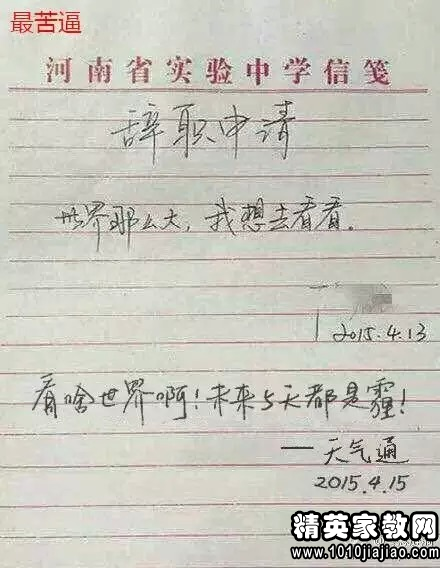 最苦逼
河南省实验中学信笺
辞职申请
世界那么大，我想去看看.
2015.4.13
看啥世界啊！未来5天都是霾！
——天气通
2015.4.15
精英家教网
www.1010jiajiao.com